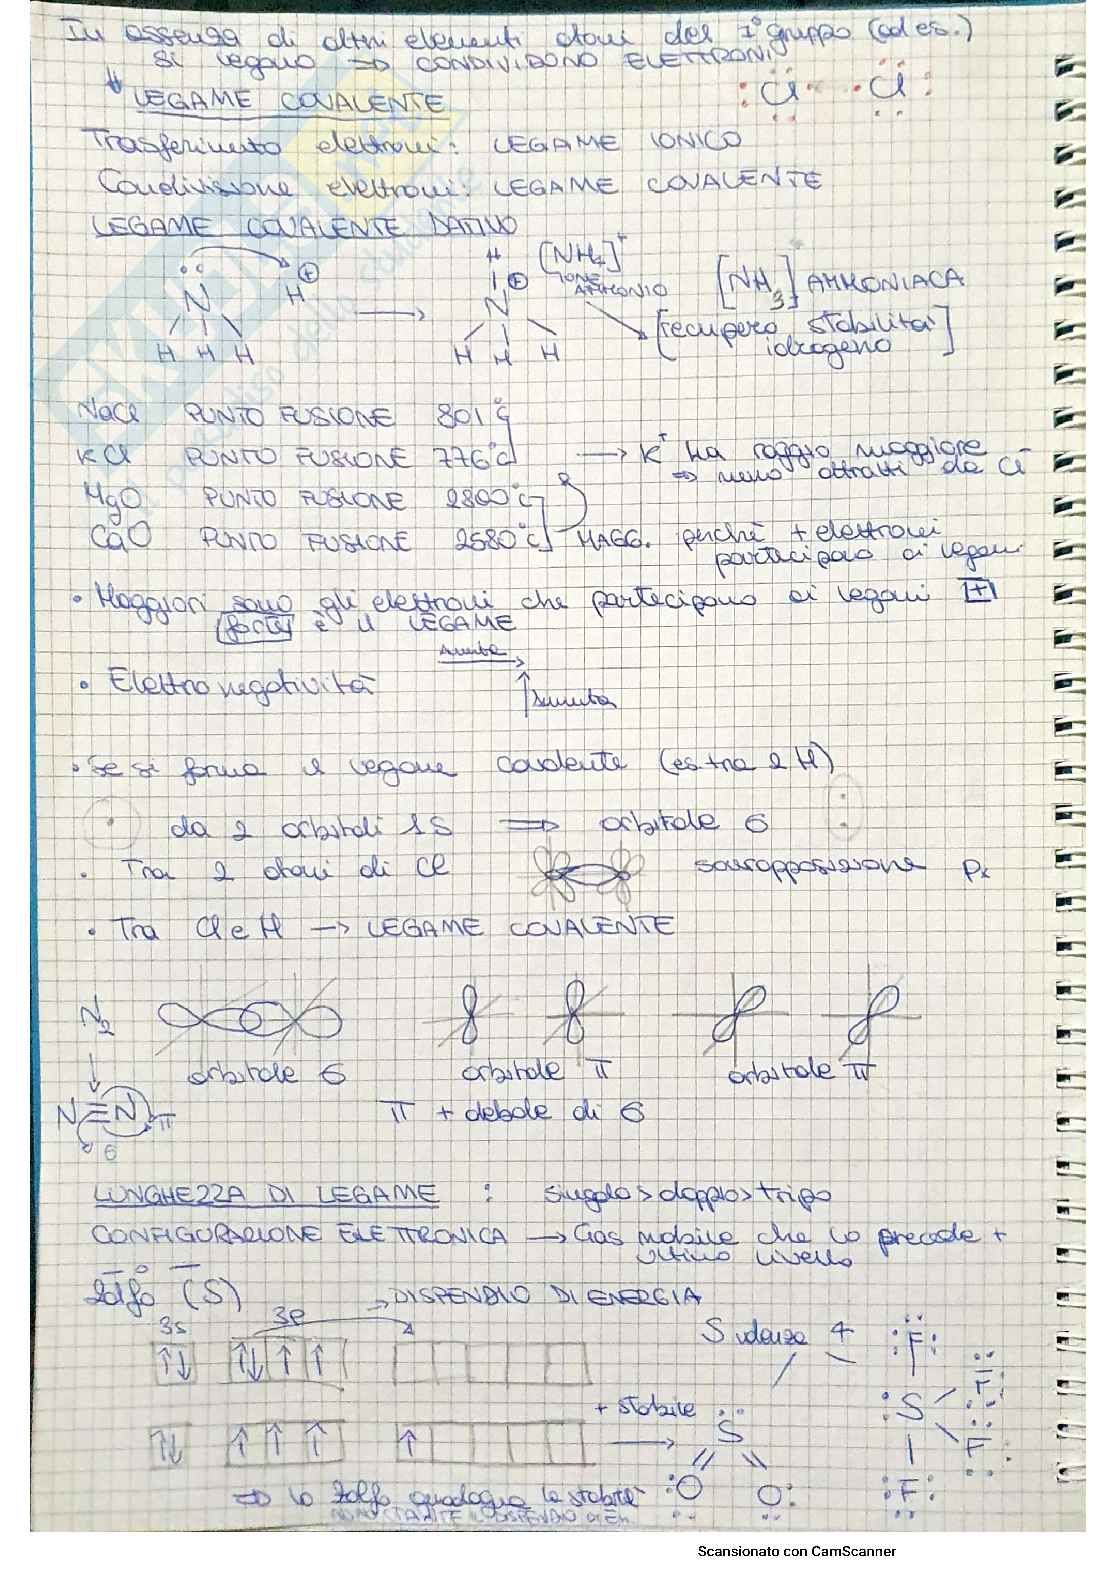 In assenza di altri elementi atomi del 7° gruppo (ad es.)
si legano ⇒ CONDIVIDONO ELETTRONI
:Cl· ·Cl:
LEGAME COVALENTE
Trasferimento elettroni: LEGAME IONICO
Condivisione elettroni: LEGAME COVALENTE
LEGAME COVALENTE DATIVO
N H H H H ⊕ → H ⊕ N H H H
[NH4]+ IONE AMMONIO
[NH3] AMMONIACA
[recupero stabilità idrogeno]
NaCl PUNTO FUSIONE 801°C
KCl PUNTO FUSIONE 776°C → K+ ha raggio maggiore
⇒ meno attratti da Cl-
MgO PUNTO FUSIONE 2800°C
CaO PUNTO FUSIONE 2580°C MAGG. perchè + elettroni
partecipano ai legami
• Maggiori sono gli elettroni che partecipono ai legami [+]
forte è il LEGAME
• Elettronegatività
Aumenta
Aumenta
• Se si forma il legame covalente (es. tra 2 H)
da 2 orbitali 1S ⇒ orbitale σ
• Tra 2 atomi di Cl sovrapposizione px
• Tra Cl e H → LEGAME COVALENTE
N2
orbitale σ orbitale π orbitale π
N≡N π
σ
π + debole di σ
LUNGHEZZA DI LEGAME : singolo > doppio > triplo
CONFIGURAZIONE ELETTRONICA → Gas nobile che lo precede +
ultimo livello
Zolfo (S) → DISPENDIO DI ENERGIA
3s 3p
↑↓ ↑↓ ↑ ↑
S valenza 4
:F:
:S F
F
:F:
↑↓ ↑ ↑ ↑ ↑
+ stabile
S
:O O:
⇒ lo Zolfo guadagna la stabilità
NONOSTANTE IL DISPENDIO DI EN.
Scansionato con CamScanner